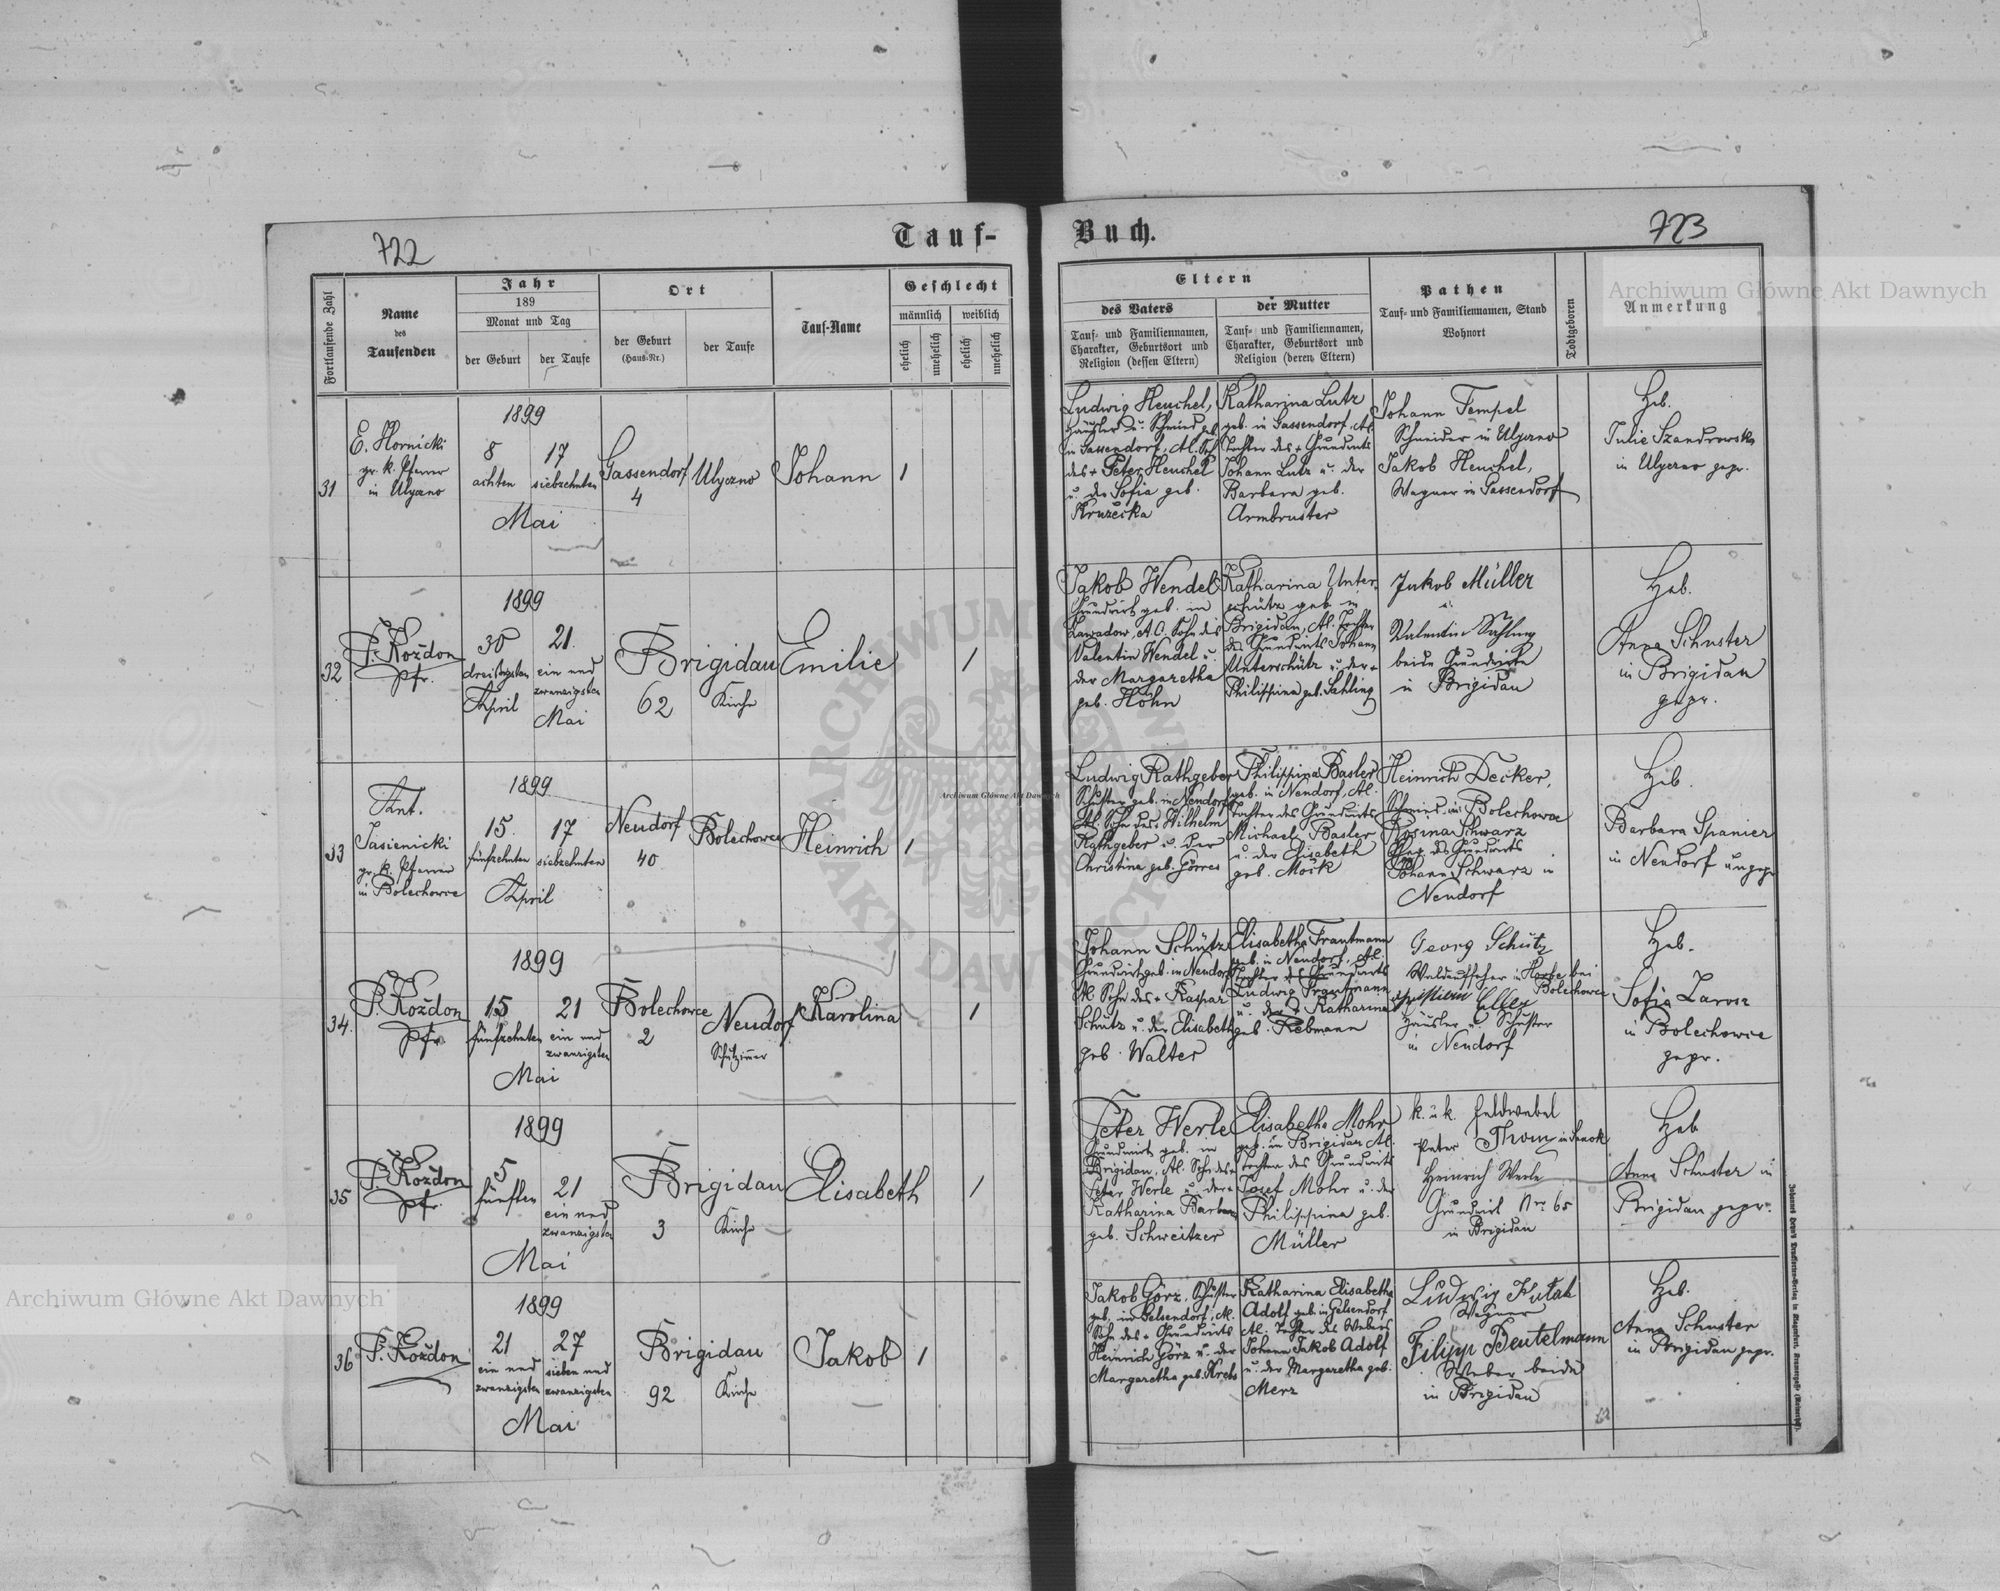 722
Tauf-
Fortlaufende Zahl
Name
des
Taufenden
Jahr
189
Monat und Tag
der Geburt
der Taufe
Ort
der Geburt
(Haus-Nr.)
der Taufe
Tauf-Name
Geschlecht
männlich
weiblich
ehelich
unehelich
ehelich
unehelich
31
E. Hornicki
gr. k. Pfarrer
in Ulyczno
1899
8
achten
17
siebzehnten
Mai
Gassendorf
4
Ulyczno
Johann
1
32
F. Koždon
Pfr.
1899
30
dreißigsten
April
21.
ein und
zwanzigsten
Mai
Brigidau
62
Kirche
Emilie
1
33
Ant.
Jasienicki
gr. k. Pfarrer
in Bolechowce
1899
15.
fünfzehnten
17
siebzehnten
April
Neudorf
40
Bolechowce
Heinrich
1
34.
F. Koždon
Pfr.
1899
15
fünfzehnten
21
ein und
zwanzigsten
Mai
Bolechowce
2
Neudorf
Schulzimmer
Karolina
1
35
F. Koždon
Pfr.
1899
5
fünften
21
ein und
zwanzigsten
Mai
Brigidau
3
Kirche
Elisabeth
1
36
F. Koždon
1899
21
ein und
zwanzigsten
27
sieben und
zwanzigsten
Mai
Brigidau
92
Kirche
Jakob
1
Buch.
723
Eltern
des Vaters
Tauf- und Familiennamen,
Charakter, Geburtsort und
Religion (dessen Eltern)
der Mutter
Tauf- und Familiennamen,
Charakter, Geburtsort und
Religion (deren Eltern)
Pathen
Tauf- und Familiennamen, Stand
Wohnort
Todtgeboren
Anmerkung
Ludwig Heuchel,
Häusler u. Schmied geb.
in Gassendorf, Al. Sohn
des + Peter Heuchel
u. der Sofia geb.
Kruzecka
Katharina Lutz
geb. in Gassendorf, Al.
Tochter des + Grundwirts
Johann Lutz u. der
Barbara geb.
Armbruster
Johann Tempel
Schneider in Ulyczno
Jakob Heuchel,
Wagner in Gassendorf
Heb.
Julie Szandrowska
in Ulyczno gepr.
Jakob Wendel
Grundwirt geb. in
Zawadow, A.C. Sohn des
Valentin Wendel u.
der Margaretha
geb. Höhn
Katharina Unter-
schütz geb. in
Brigidau, Al. Tochter
des Grundwirts Johann
Unterschütz u. der +
Philippina geb. Sahling
Jakob Müller
u.
Valentin Sahling
beide Grundwirte
in Brigidau
Heb.
Anna Schuster
in Brigidau
gepr.
Ludwig Rathgeber
Schuster geb. in Neudorf
Al. Sohn des + Wilhelm
Rathgeber u. der
Christina geb. Görres
Philippina Basler
geb. in Neudorf, Al.
Tochter des Grundwirts
Michael Basler
u. der Elisabeth
geb. Mock
Heinrich Decker,
Schmied in Bolechowce
Rosina Schwarz
des Grundwirts
Johann Schwarz in
Neudorf
Heb.
Barbara Spanier
in Neudorf ungepr.
Johann Schütz
Grundwirt geb. in Neudorf
Al. Sohn des + Kaspar
Schütz u. der Elisabeth
geb. Walter
Elisabetha Trautmann
geb. in Neudorf, Al.
Tochter des Grundwirts
Ludwig Trautmann
u. der + Katharina
geb. Rebmann
Georg Schütz
Waldaufseher in bei
Bolechowce
Christian
Häusler u. Schuster
in Neudorf
Heb.
Sofia Zarosz
in Bolechowce
gepr.
Peter Werle
Grundwirt geb. in
Brigidau, Al. Sohn des +
Peter Werle u. der +
Katharina Barbara
geb. Schweitzer
Elisabetha Mohr
geb. in Brigidau Al.
Tochter des Grundwirts
Josef Mohr u. der
Philippina geb.
Müller
k. u. k. Feldwebel
Peter Thom in Sanok
Heinrich Werle
Grundwirt Nro 65
in Brigidau
Heb
Anna Schuster in
Brigidau gepr.
Jakob Görz, Schuster
geb. in Gelsendorf, Al.
Sohn des + Grundwirts
Heinrich Görz u. der
Margaretha geb. Krebs
Katharina Elisabetha
Adolf geb. in Gelsendorf
Al. Tochter des Webers
Johann Jakob Adolf
u. der Margaretha geb.
Merz
Ludwig Kutak
Wagner
Filipp Beutelmann
Weber beide
in Brigidau
Heb.
Anna Schuster
in Brigidau gepr.
Archiwum Główne Akt Dawnych
Archiwum Główne Akt Dawnych
Archiwum Główne Akt Dawnych
ARCHIWUM GŁÓWNE
AKT DAWNYCH